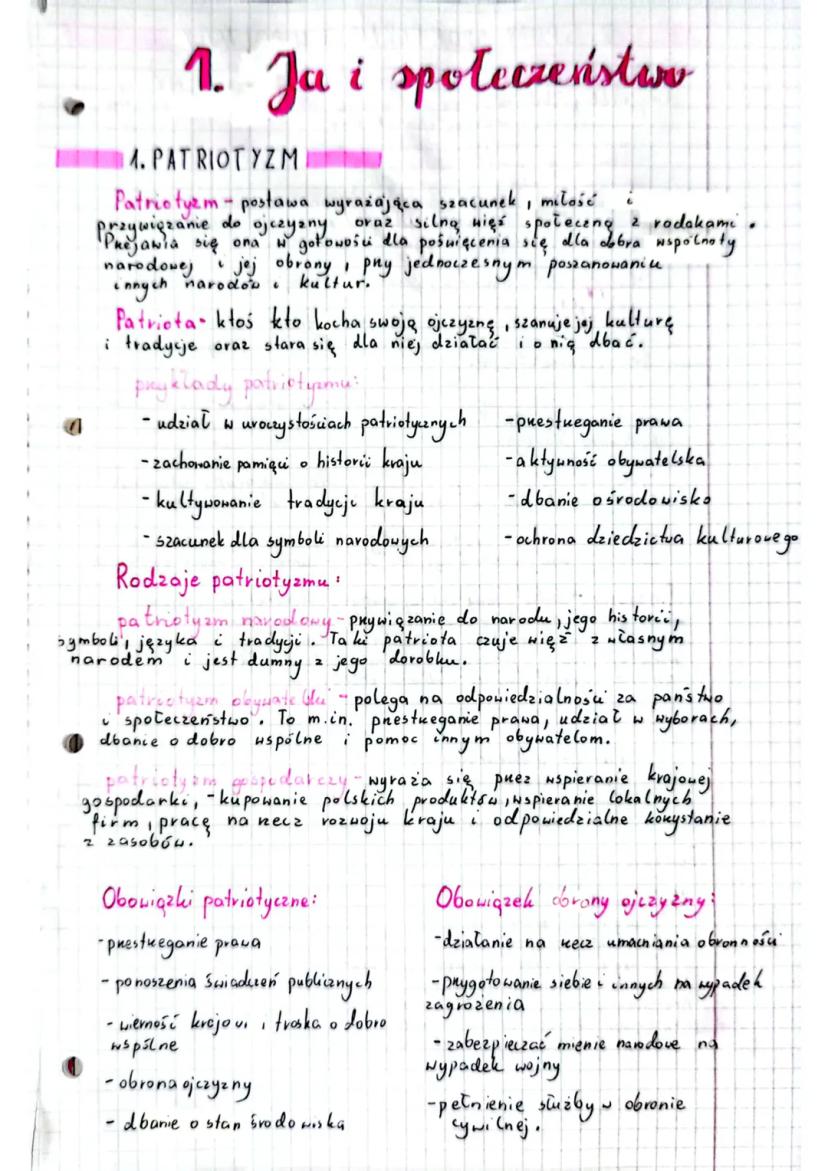 1. Ja i społeczeństwo
1. PATRIOTYZM
Patriotyzm - postawa wyrażająca szacunek, miłość i
przywiązanie do ojczyzny oraz silną więź społeczną z rodakami.
Przejawia się ona w gotowości dla poświęcenia się dla dobra wspólnoty
narodowej i jej obrony, przy jednoczesnym poszanowaniu
innych narodów i kultur.
Patriota - ktoś kto kocha swoją ojczyznę, szanuje jej kulturę
i tradycje oraz stara się dla niej działać i o nią dbać.
przykłady patriotyzmu:
- udział w uroczystościach patriotycznych
- zachowanie pamięci o historii kraju
- kultywowanie tradycji kraju
- szacunek dla symboli narodowych
- przestrzeganie prawa
- aktywność obywatelska
- dbanie o środowisko
- ochrona dziedzictwa kulturowego
Rodzaje patriotyzmu:
patriotyzm narodowy - przywiązanie do narodu, jego historii,
symboli, języka i tradycji. Taki patriota czuje więź z własnym
narodem i jest dumny z jego dorobku.
patriotyzm obywatelski - polega na odpowiedzialności za państwo
i społeczeństwo. To m.in. przestrzeganie prawa, udział w wyborach,
dbanie o dobro wspólne i pomoc innym obywatelom.
patriotyzm gospodarczy - wyraża się przez wspieranie krajowej
gospodarki, - kupowanie polskich produktów, wspieranie lokalnych
firm, pracę na rzecz rozwoju kraju i odpowiedzialne korzystanie
z zasobów.
Obowiązki patriotyczne:
- przestrzeganie prawa
- ponoszenia świadczeń publicznych
- wierność krajowi i troska o dobro
wspólne
- obrona ojczyzny
- dbanie o stan środowiska
Obowiązek obrony ojczyzny:
- działanie na rzecz umacniania obronności
- przygotowanie siebie i innych na wypadek
zagrożenia
- zabezpieczać mienie narodowe na
wypadek wojny
- pełnienie służby w obronie
cywilnej.